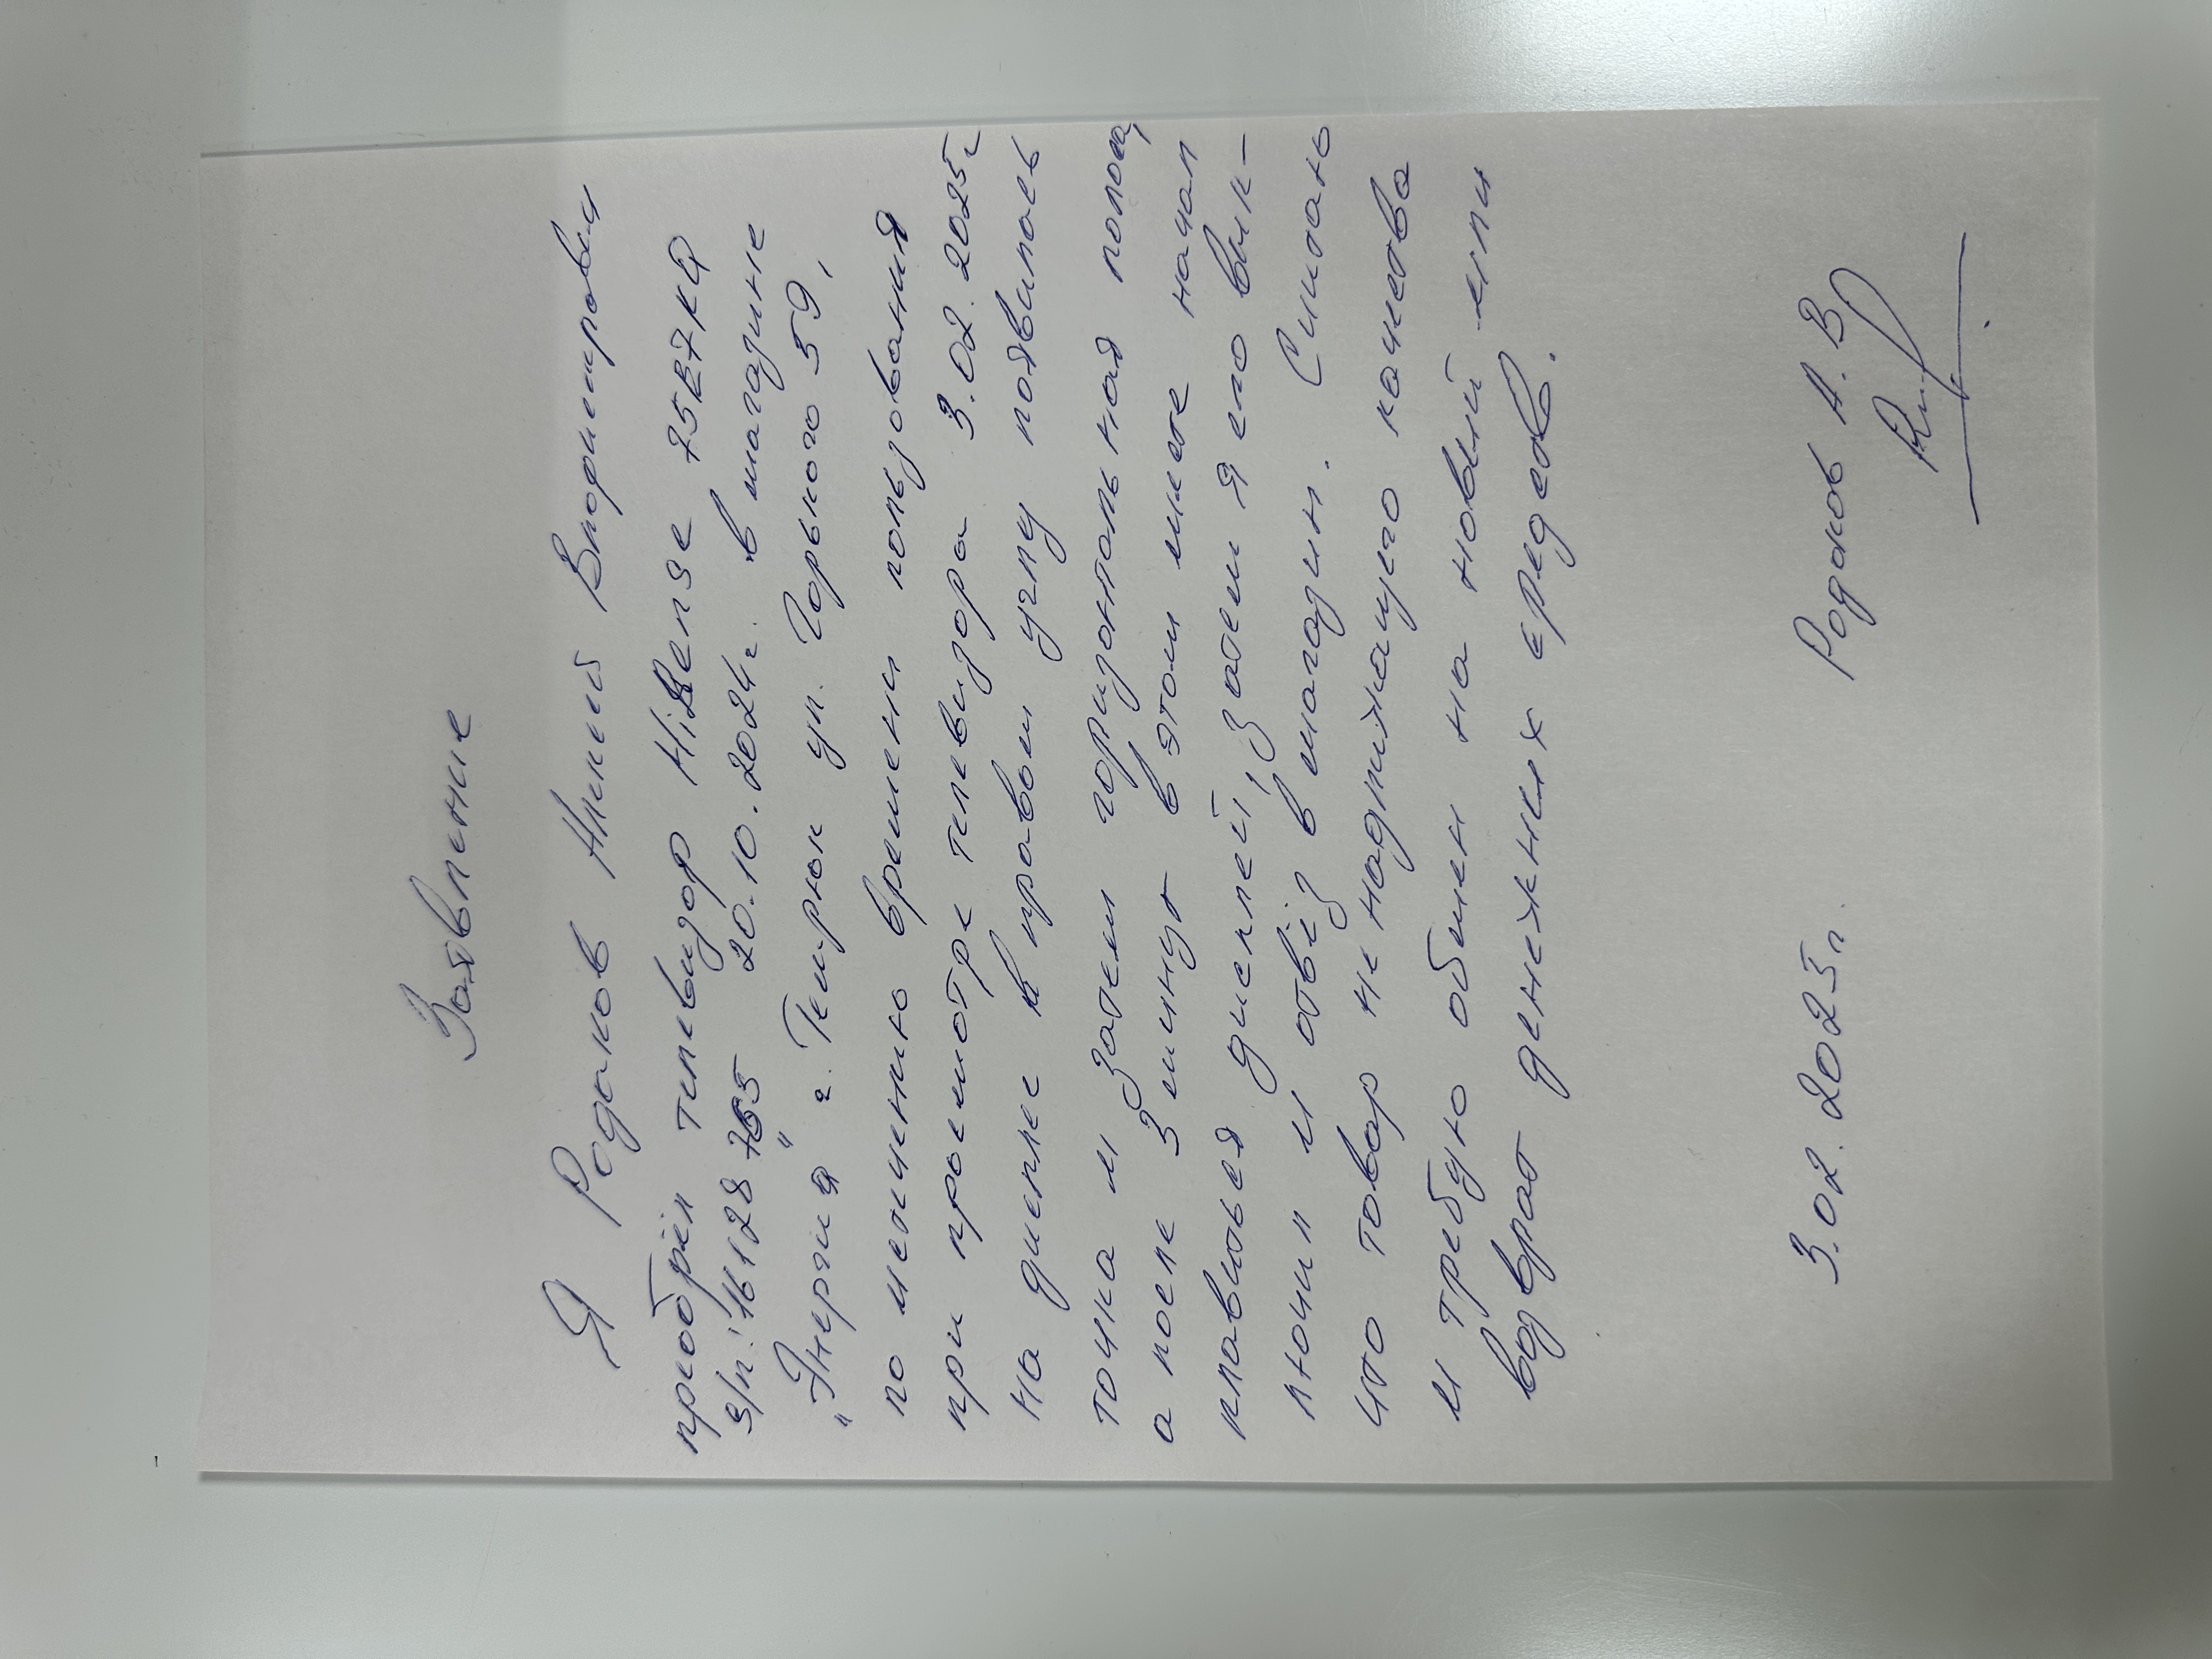 Заявление
Я Родаков Алксей Владимирович
приобрёл телевизор HiSense 75E7KQ
з/п: 16128765 20.10.2024г. в магазине
„Энергия" г. Темрюк ул. Горького 59,
по истичению времени пользования
при просмотре телевизора 3.02.2025г
на дисплее в правом углу появилось
точка и затем горизонтальная полоса,
а после 3 минут в этом месте начал
плавиться дисплей, затем я его вык-
лючил и отвёз в магазин. Считаю
что товар не надлижащего качества
и требую обмен на новый или
возврат денежных средств.
3.02.2025г. Родаков А.В